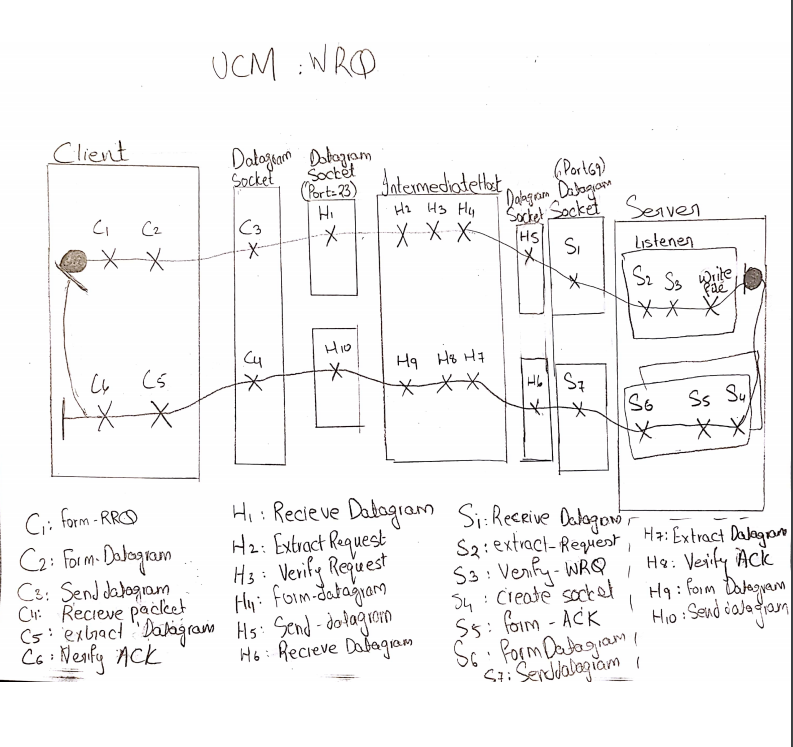 UCM : WRQ
Client
Datagram
Socket
Datagram
Socket
(Port=23)
IntermediateHost
Datagram
Socket
(Port69)
Datagram
Socket
Server
Listener
C1
C2
C3
H1
H2
H3
H4
H5
S1
S2
S3
Write
file
C6
C5
C4
H10
H9
H8
H7
H6
S7
S6
S5
S4
C1: form-RRQ
C2: Form-Datagram
C3: Send datagram
C4: Recieve packet
C5: extract Datagram
C6: Verify ACK
H1: Recieve Datagram
H2: Extract Request
H3: Verify Request
H4: form-datagram
H5: Send-datagram
H6: Recieve Datagram
S1: Receive Datagram
S2: extract-Request
S3: Verify-WRQ
S4: Create socket
S5: form-ACK
S6: Form Datagram
S7: Send datagram
H7: Extract Datagram
H8: Verify ACK
H9: Form Datagram
H10: Send datagram